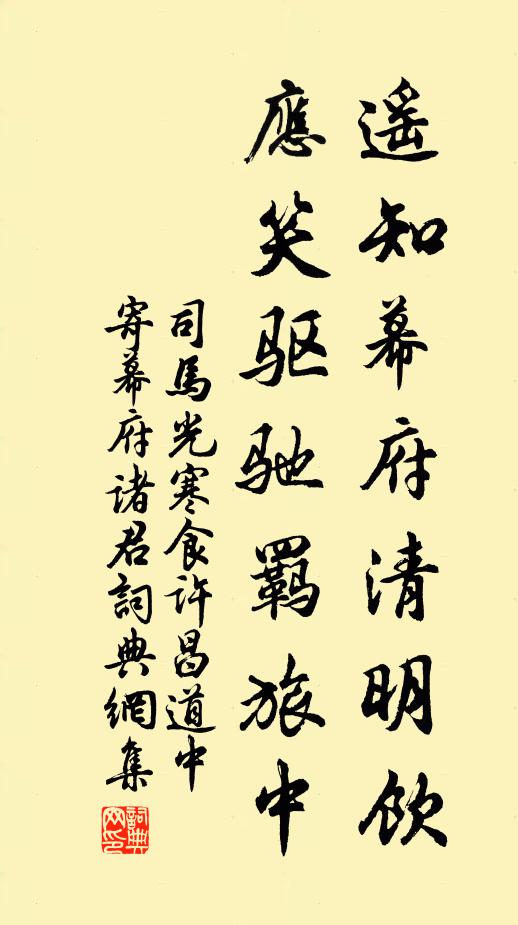 遥知幕府清明飲
應笑驱驰羈旅中
司馬光寒食许昌道中
寄幕府诸君詞典網集
詞典网印